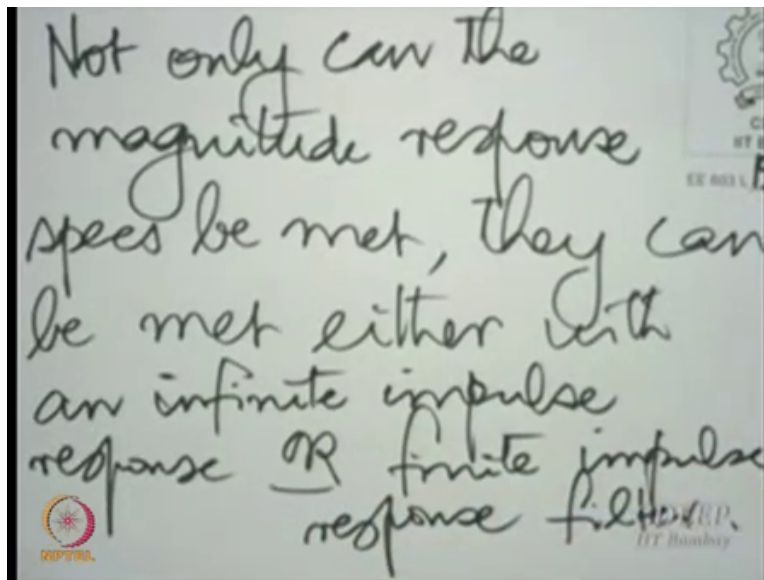 Not only can the
magnitude response
specs be met, they can
be met either with
an infinite impulse
response OR finite impulse
response filter.
IIT B
EE 603 L
NPTEL
IIT Bombay